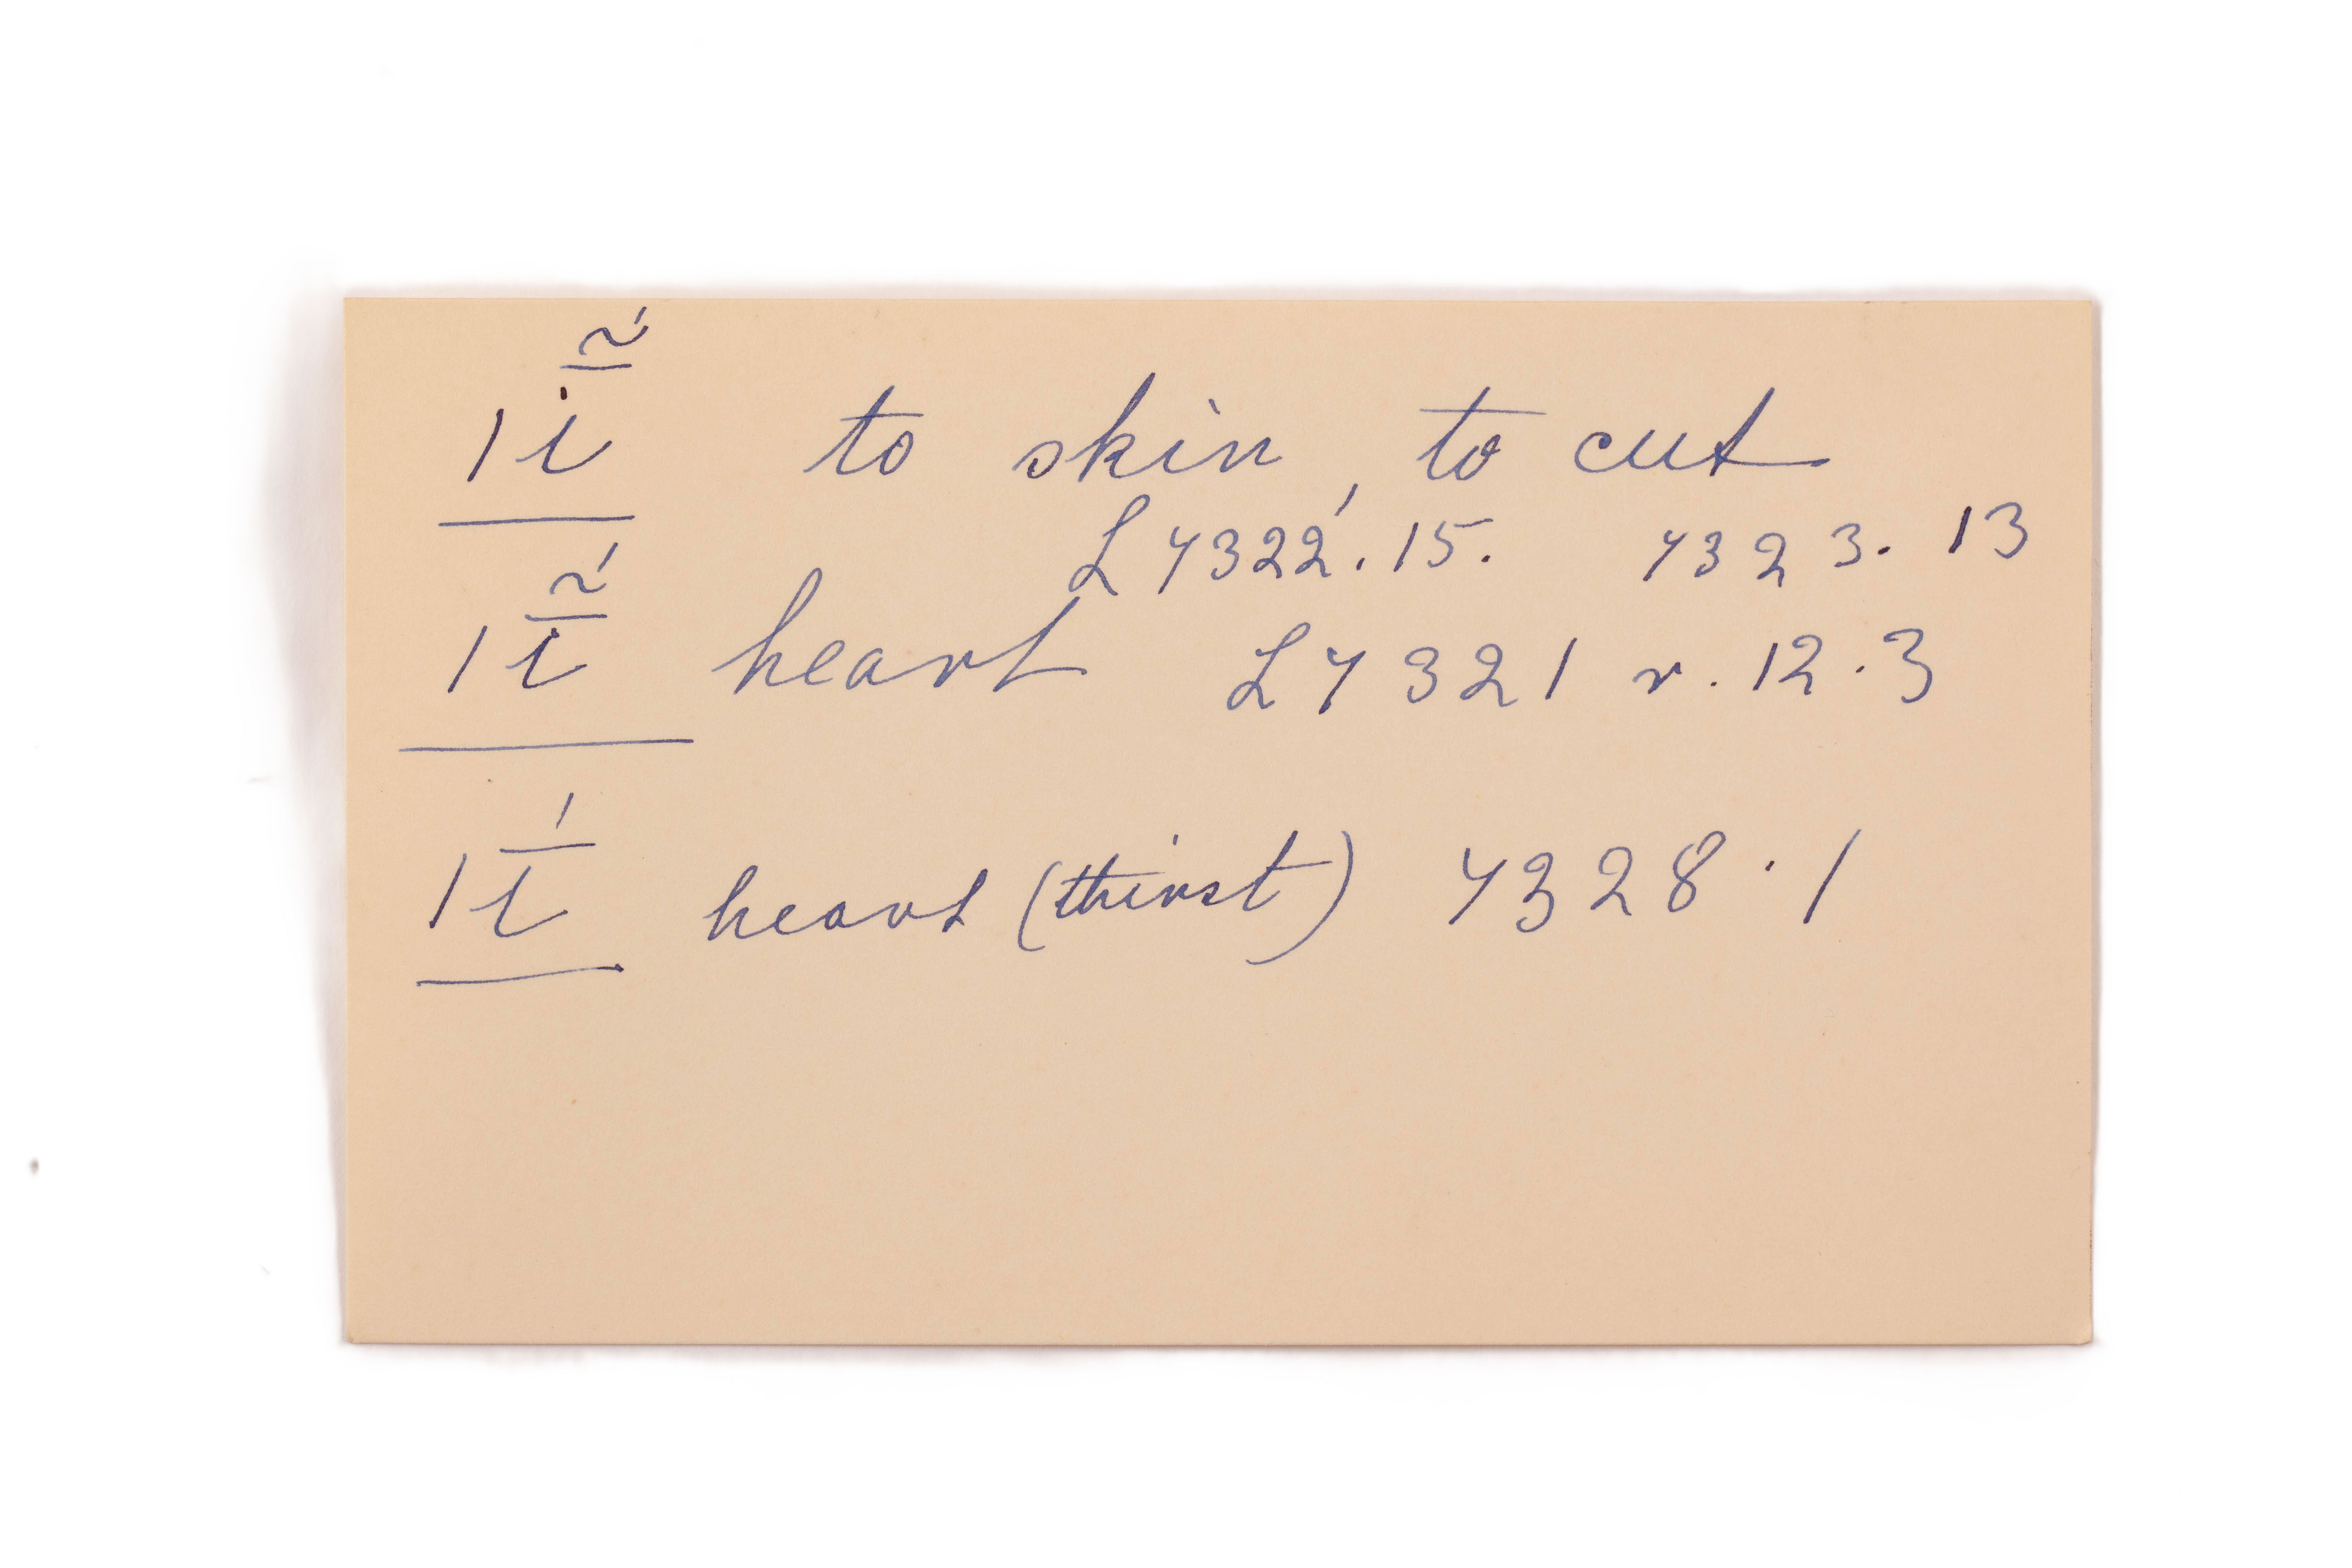 |ī̃́ to skin, to cut
L 4322'.15. 4323. 13
|ī̃́ heart L 4321 r. 12.3
|ī́ heart (thirst) 4328.1